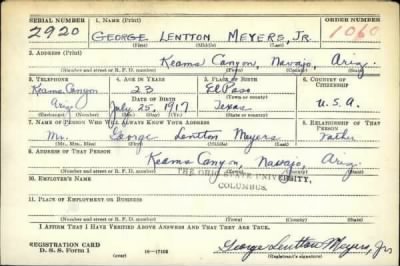 SERIAL NUMBER 1. NAME (Print) ORDER NUMBER
2920 GEORGE LENTTON MEYERS, JR. 1060
(First) (Middle) (Last)
2. ADDRESS (Print)
Keams Canyon, Navajo, Ariz.
(Number and street or R. F. D. number) (Town) (County) (State)
3. TELEPHONE 4. AGE IN YEARS 5. PLACE OF BIRTH 6. COUNTRY OF CITIZENSHIP
Keams Canyon 23 El Paso
DATE OF BIRTH (Town or county)
Ariz July 25, 1917 Texas U.S.A.
(Exchange) (Number) (Mo.) (Day) (Yr.) (State or country)
7. NAME OF PERSON WHO WILL ALWAYS KNOW YOUR ADDRESS 8. RELATIONSHIP OF THAT PERSON
Mr. George Lentton Meyers Father
(Mr., Mrs., Miss) (First) (Middle) (Last)
9. ADDRESS OF THAT PERSON
Keams Canyon, Navajo, Ariz.
(Number and street or R. F. D. number) (Town) (County) (State)
10. EMPLOYER'S NAME
THE OHIO STATE UNIVERSITY,
COLUMBUS.
11. PLACE OF EMPLOYMENT OR BUSINESS
(Number and street or R. F. D. number) (Town) (County) (State)
I AFFIRM THAT I HAVE VERIFIED ABOVE ANSWERS AND THAT THEY ARE TRUE.
REGISTRATION CARD George Lentton Meyers, Jr.
D. S. S. Form 1 (over) (Registrant's signature)